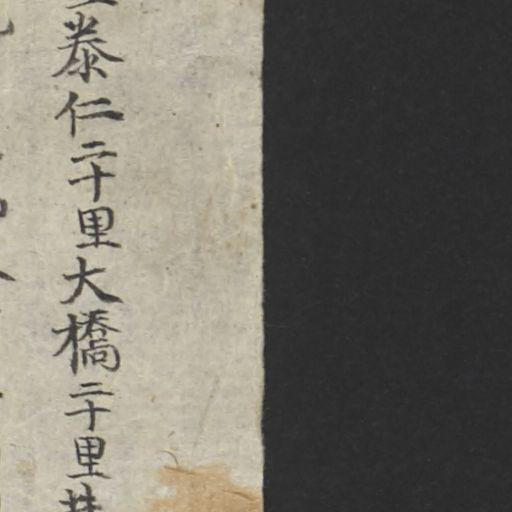 泰仁二十里大橋二十里